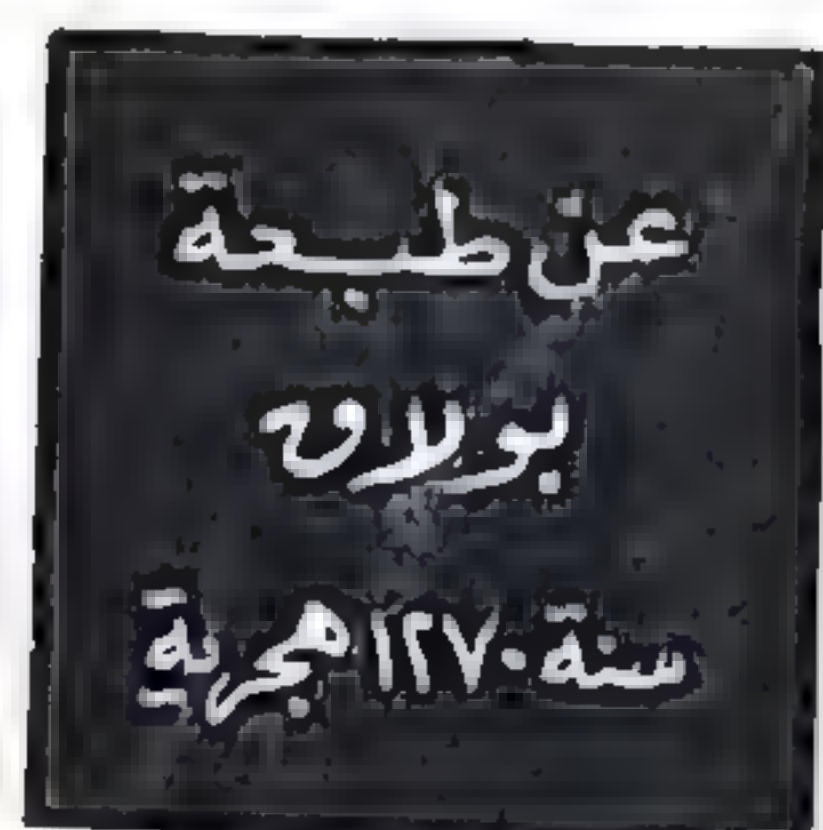 عن طبعة
بولاق
سنة ١٢٧٠ هجرية